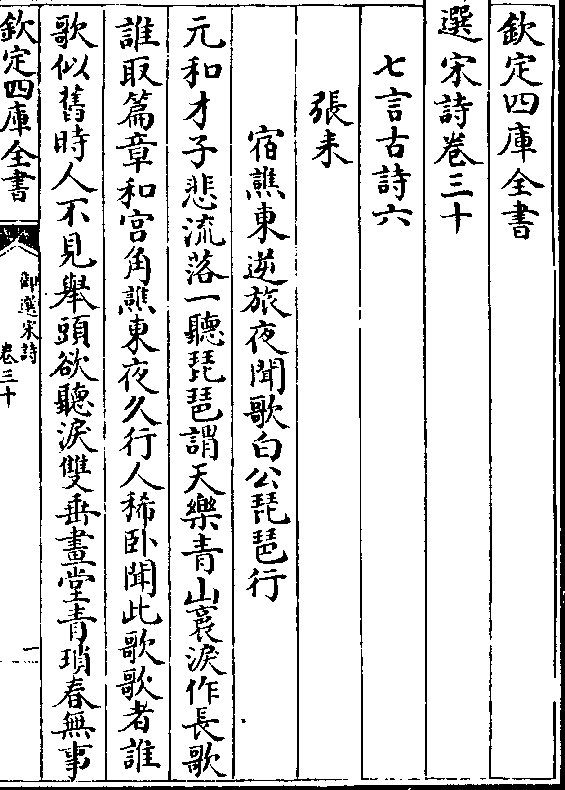 欽定四庫全書
選宋詩卷三十
七言古詩六
張耒
宿譙東逆旅夜聞歌白公琵琶行
元和才子悲流落一聽琵琶謂天樂青山裛淚作長歌
誰取篇章和宫角譙東夜久行人稀卧聞此歌歌者誰
歌似舊時人不見舉頭欲聽淚雙垂畫堂青瑣春無事
欽定四庫全書
御選宋詩
卷三十
一